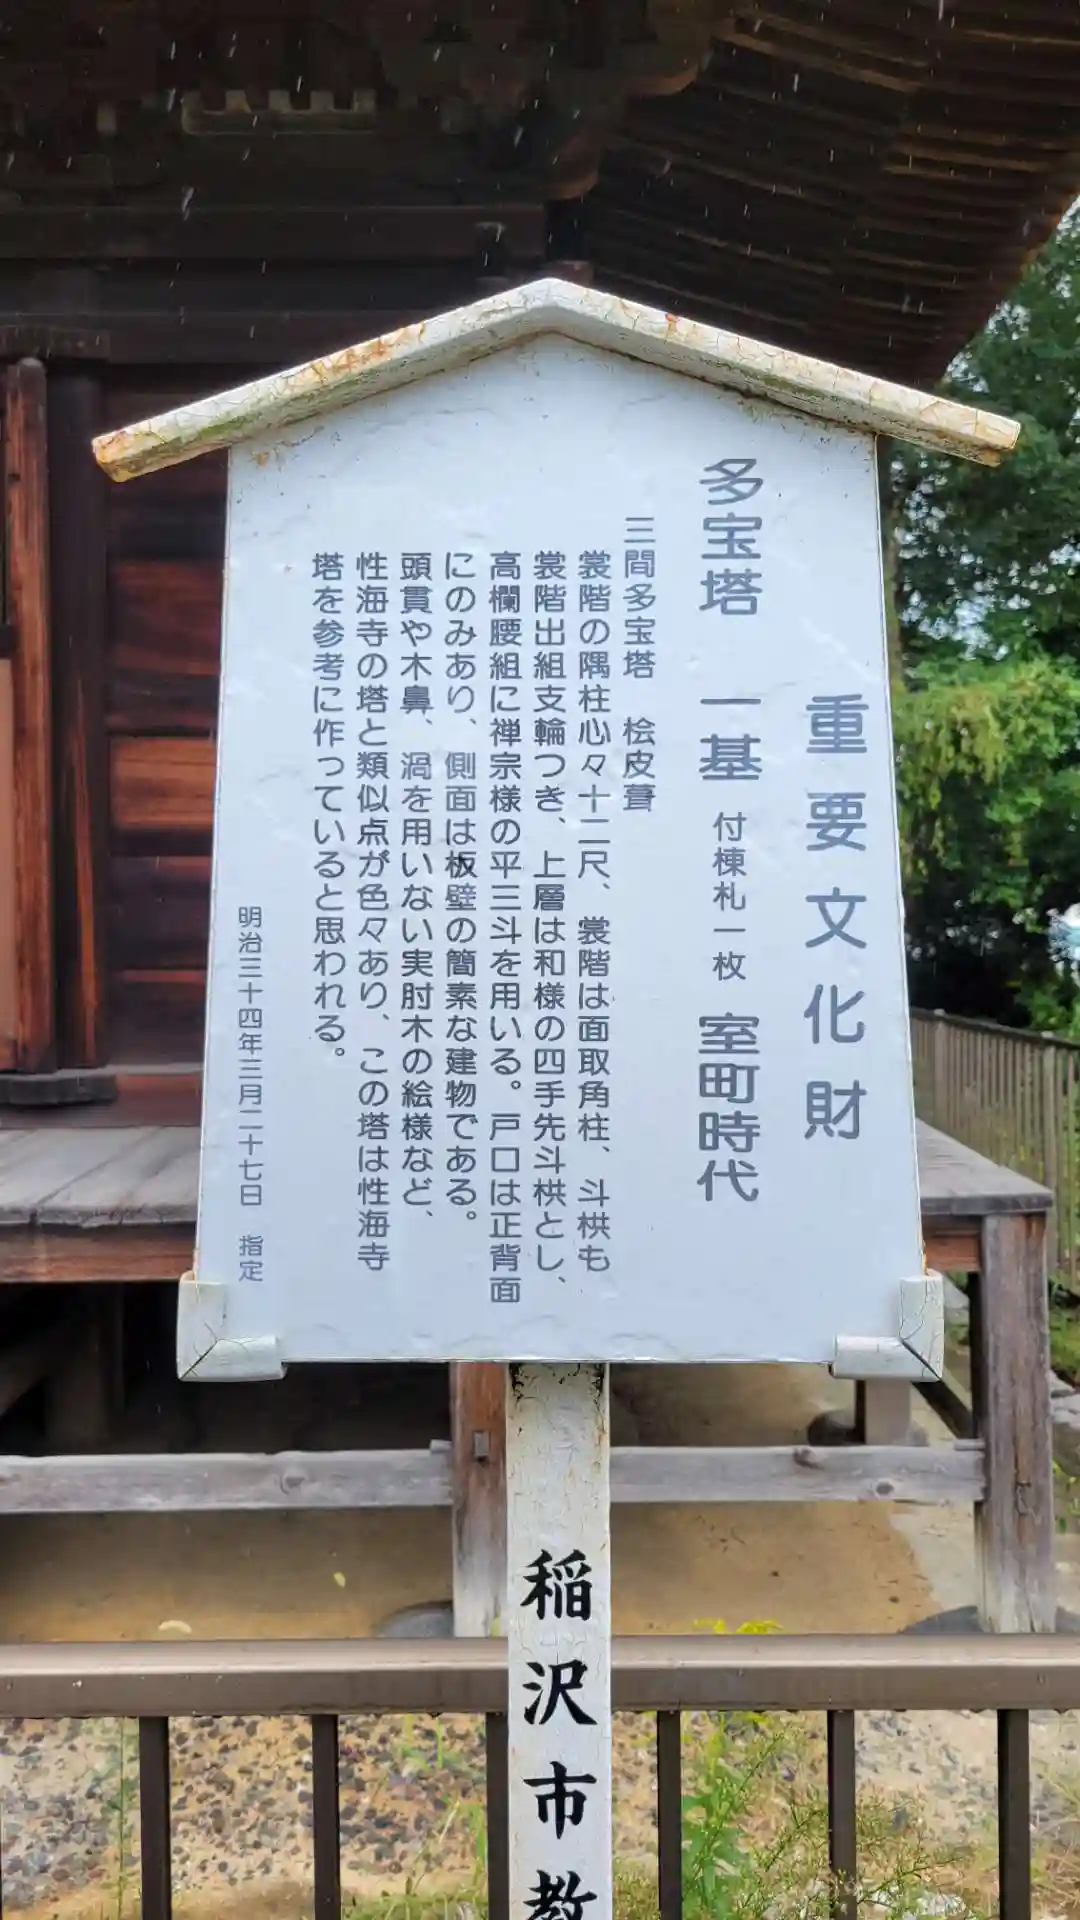 重要文化財
多宝塔 一基 付棟札一枚 室町時代
三間多宝塔 桧皮葺
裳階の隅柱心々十二尺、裳階は面取角柱、斗栱も
裳階出組支輪つき、上層は和様の四手先斗栱とし、
高欄腰組に禅宗様の平三斗を用いる。戸口は正背面
にのみあり、側面は板壁の簡素な建物である。
頭貫や木鼻、渦を用いない実肘木の絵様など、
性海寺の塔と類似点が色々あり、この塔は性海寺
塔を参考に作っていると思われる。
明治三十四年三月二十七日 指定
稲沢市教